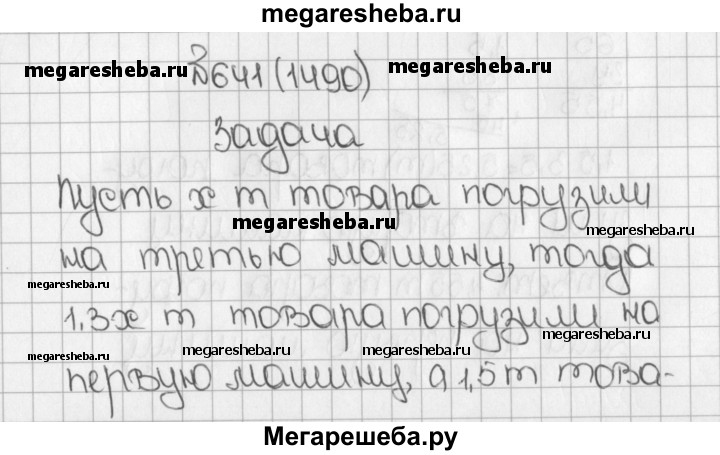 megaresheba.ru
megaresheba.ru №641(1490) megaresheba.ru
Задача
Пусть x т товара погрузили
megaresheba.ru megaresheba.ru
на третью машину, тогда
megaresheba.ru megaresheba.ru
1,3x т товара погрузили на
megaresheba.ru megaresheba.ru megaresheba.ru megaresheba.ru
первую машину, а 1,5 т това-
Мегарешеба.ру